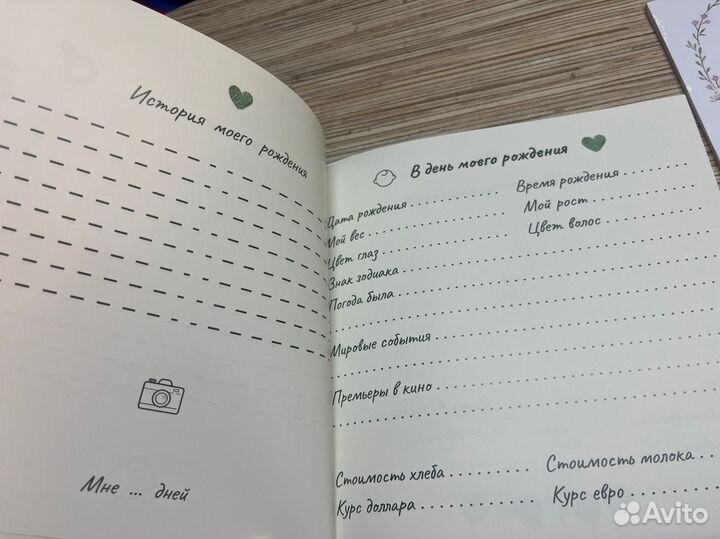 История моего рождения
Мне ... дней
В день моего рождения
Дата рождения
Время рождения
Мой вес
Мой рост
Цвет глаз
Цвет волос
Знак зодиака
Погода была
Мировые события
Премьеры в кино
Стоимость хлеба
Стоимость молока
Курс доллара
Курс евро
Avito